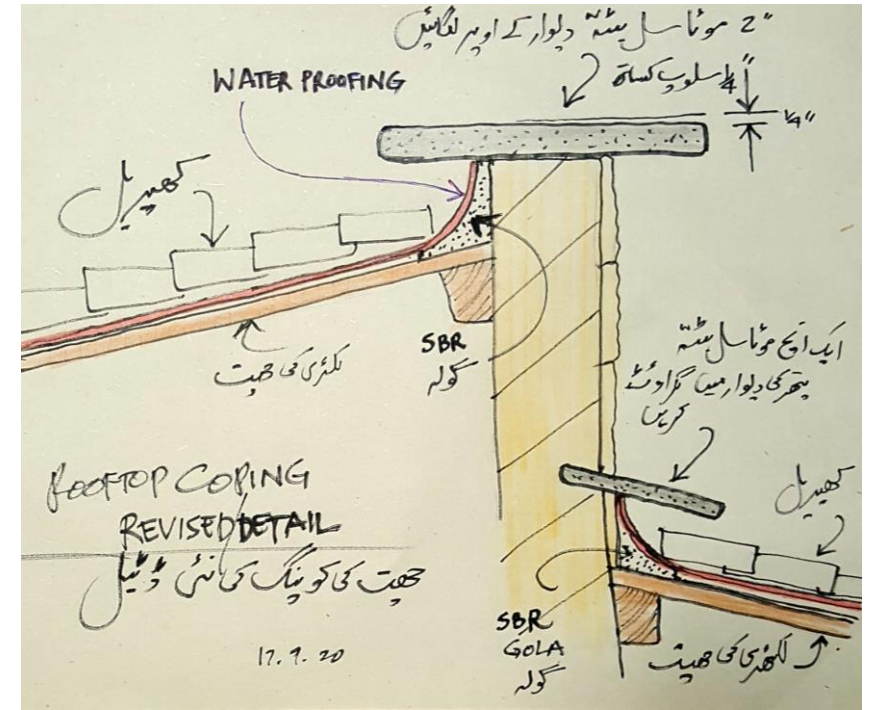 2" موٹا سل بٹہ دیوار کے اوپر لگائیں
1/4" سلوپ کیساتھ
1/4"
WATER PROOFING
کھپریل
لکڑی کی چھت
SBR
گولہ
ایک انچ موٹا سل بٹہ
پتھر کی دیوار میں گراوٹ
کریں
کھپریل
ROOFTOP COPING
REVISED DETAIL
چھت کی کوپنگ کی نئی ڈٹیل
17.9.20
SBR
GOLA
گولہ
لکڑی کی چھت